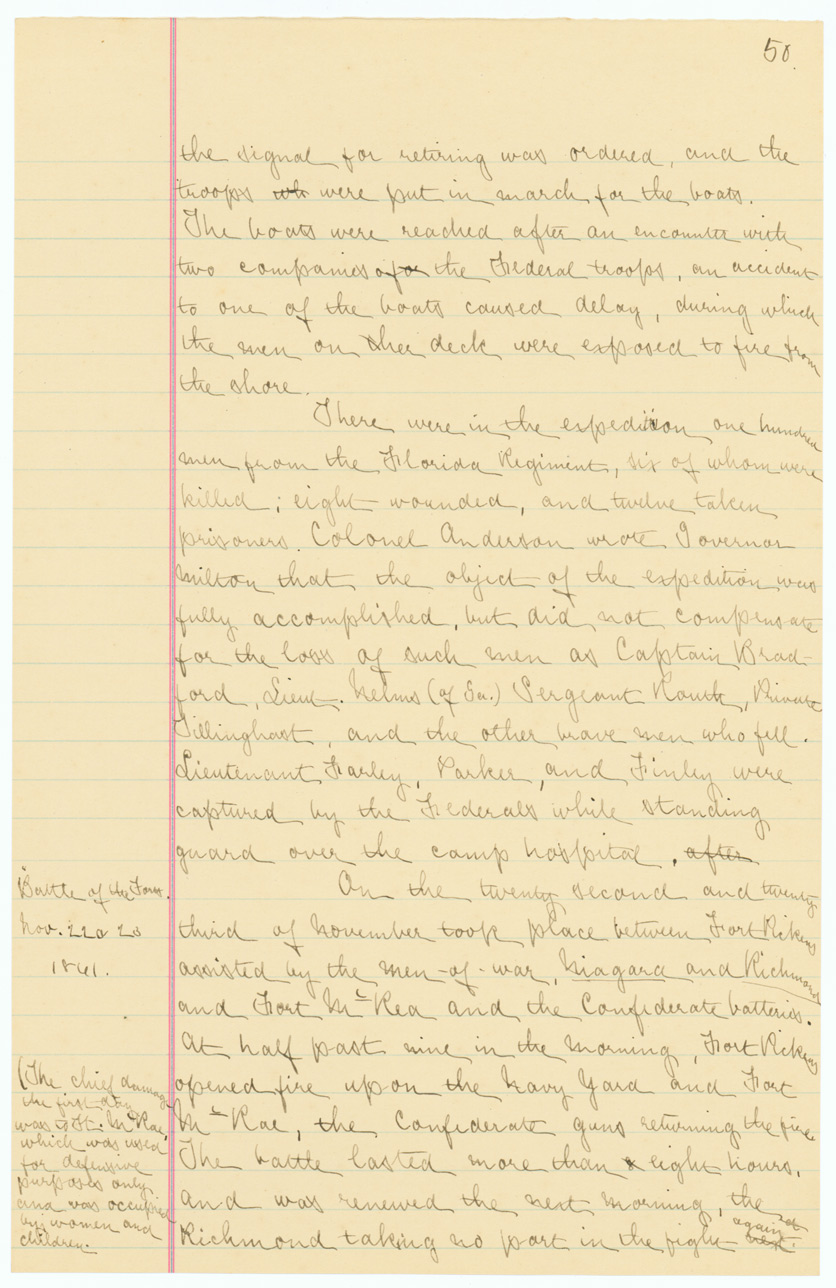 50.
the signal for retiring was ordered, and the
troops wh were put in march for the boats.
The boats were reached after an encounter with
two companies of the Federal troops, an accident
to one of the boats caused delay, during which
the men on her deck were exposed to fire from
the shore.
There were in the expedition one hundred
men from the Florida Regiment, six of whom were
killed; eight wounded, and twelve taken
prisoners. Colonel Anderson wrote Governor
Milton that the object of the expedition was
fully accomplished, but did not compensate
for the loss of such men as Captain Brad-
ford, Lieut. Nelms (of Ga.) Sergeant Routh, Private
Tillinghast, and the other brave men who fell.
Lieutenant Farley, Parker, and Finley were
captured by the Federals while standing
guard over the camp hospital, after
Battle of the Forts.
Nov. 22 & 23
1861.
On the twenty second and twenty
third of November took place between Fort Pickens
assisted by the men-of-war, Niagara and Richmond
and Fort McRea and the Confederate batteries.
At half past nine in the morning, Fort Pickens
opened fire upon the Navy Yard and Fort
McRae, the Confederate guns returning the fire.
The battle lasted more than eight hours,
and was renewed the next morning, the
Richmond taking no part in the fight again next.
(The chief damage
the first day
was to Ft. McRae,
which was used
for defensive
purposes only
and was occupied
by women and
children.